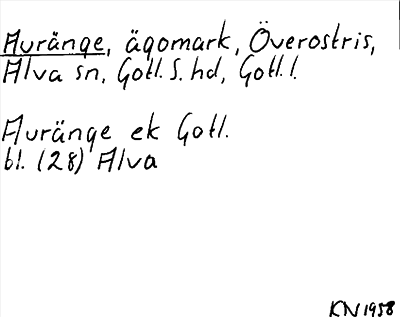 Auränge, ägomark, Överostris,
Alva sn, Gotl. S. hd, Gotl. l.
Auränge ek Gotl.
bl. (28) Alva
KN 1958